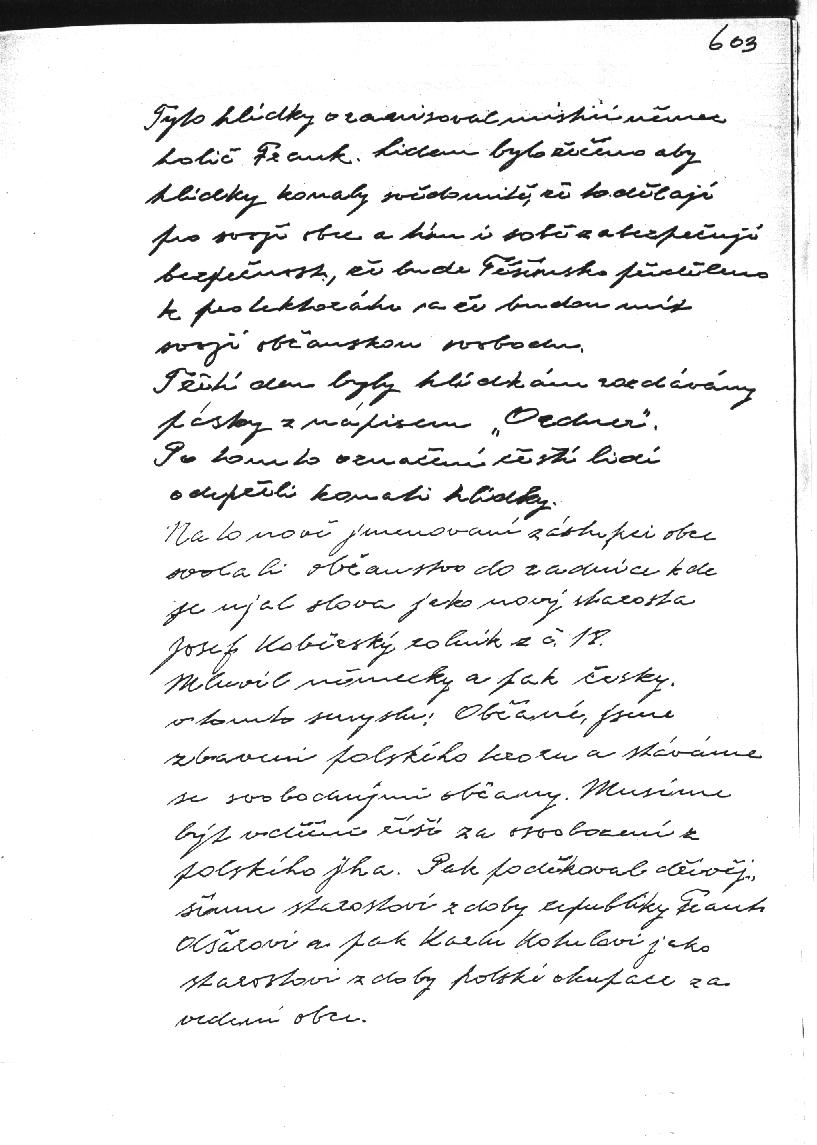 603
Tyto hlídky organisoval místní němec
holič Frank. Lidem bylo řečeno aby
hlídky konaly svědomitě, že to dělají
pro svojí obec a tím i sobě zabezpečují
bezpečnost, že bude Těšínsko přiděleno
k protektorátu a že budou mít
svojí občanskou svobodu.
Třetí den byly hlídkám rozdávány
pásky z nápisem „Ordner".
Po tomto označení čeští lidí
odepřeli konati hlídky.
Na to nově jmenovaní zástupci obce
svolali občanstvo do zadnice kde
se ujal slova jako nový starosta
Josef Kobierský rolník z č. 18.
Mluvil německy a pak česky.
v tomto smyslu: Občané, jsme
zbaveni polského teroru a stáváme
se svobodnými občany. Musíme
být vděčni říši za osvobození z
polského jha. Pak poděkoval dřívěj-
šímu starostovi z doby republiky Frant.
Olšarovi a pak Karlu Kotulovi jako
starostovi z doby polské okupace za
vedení obce.